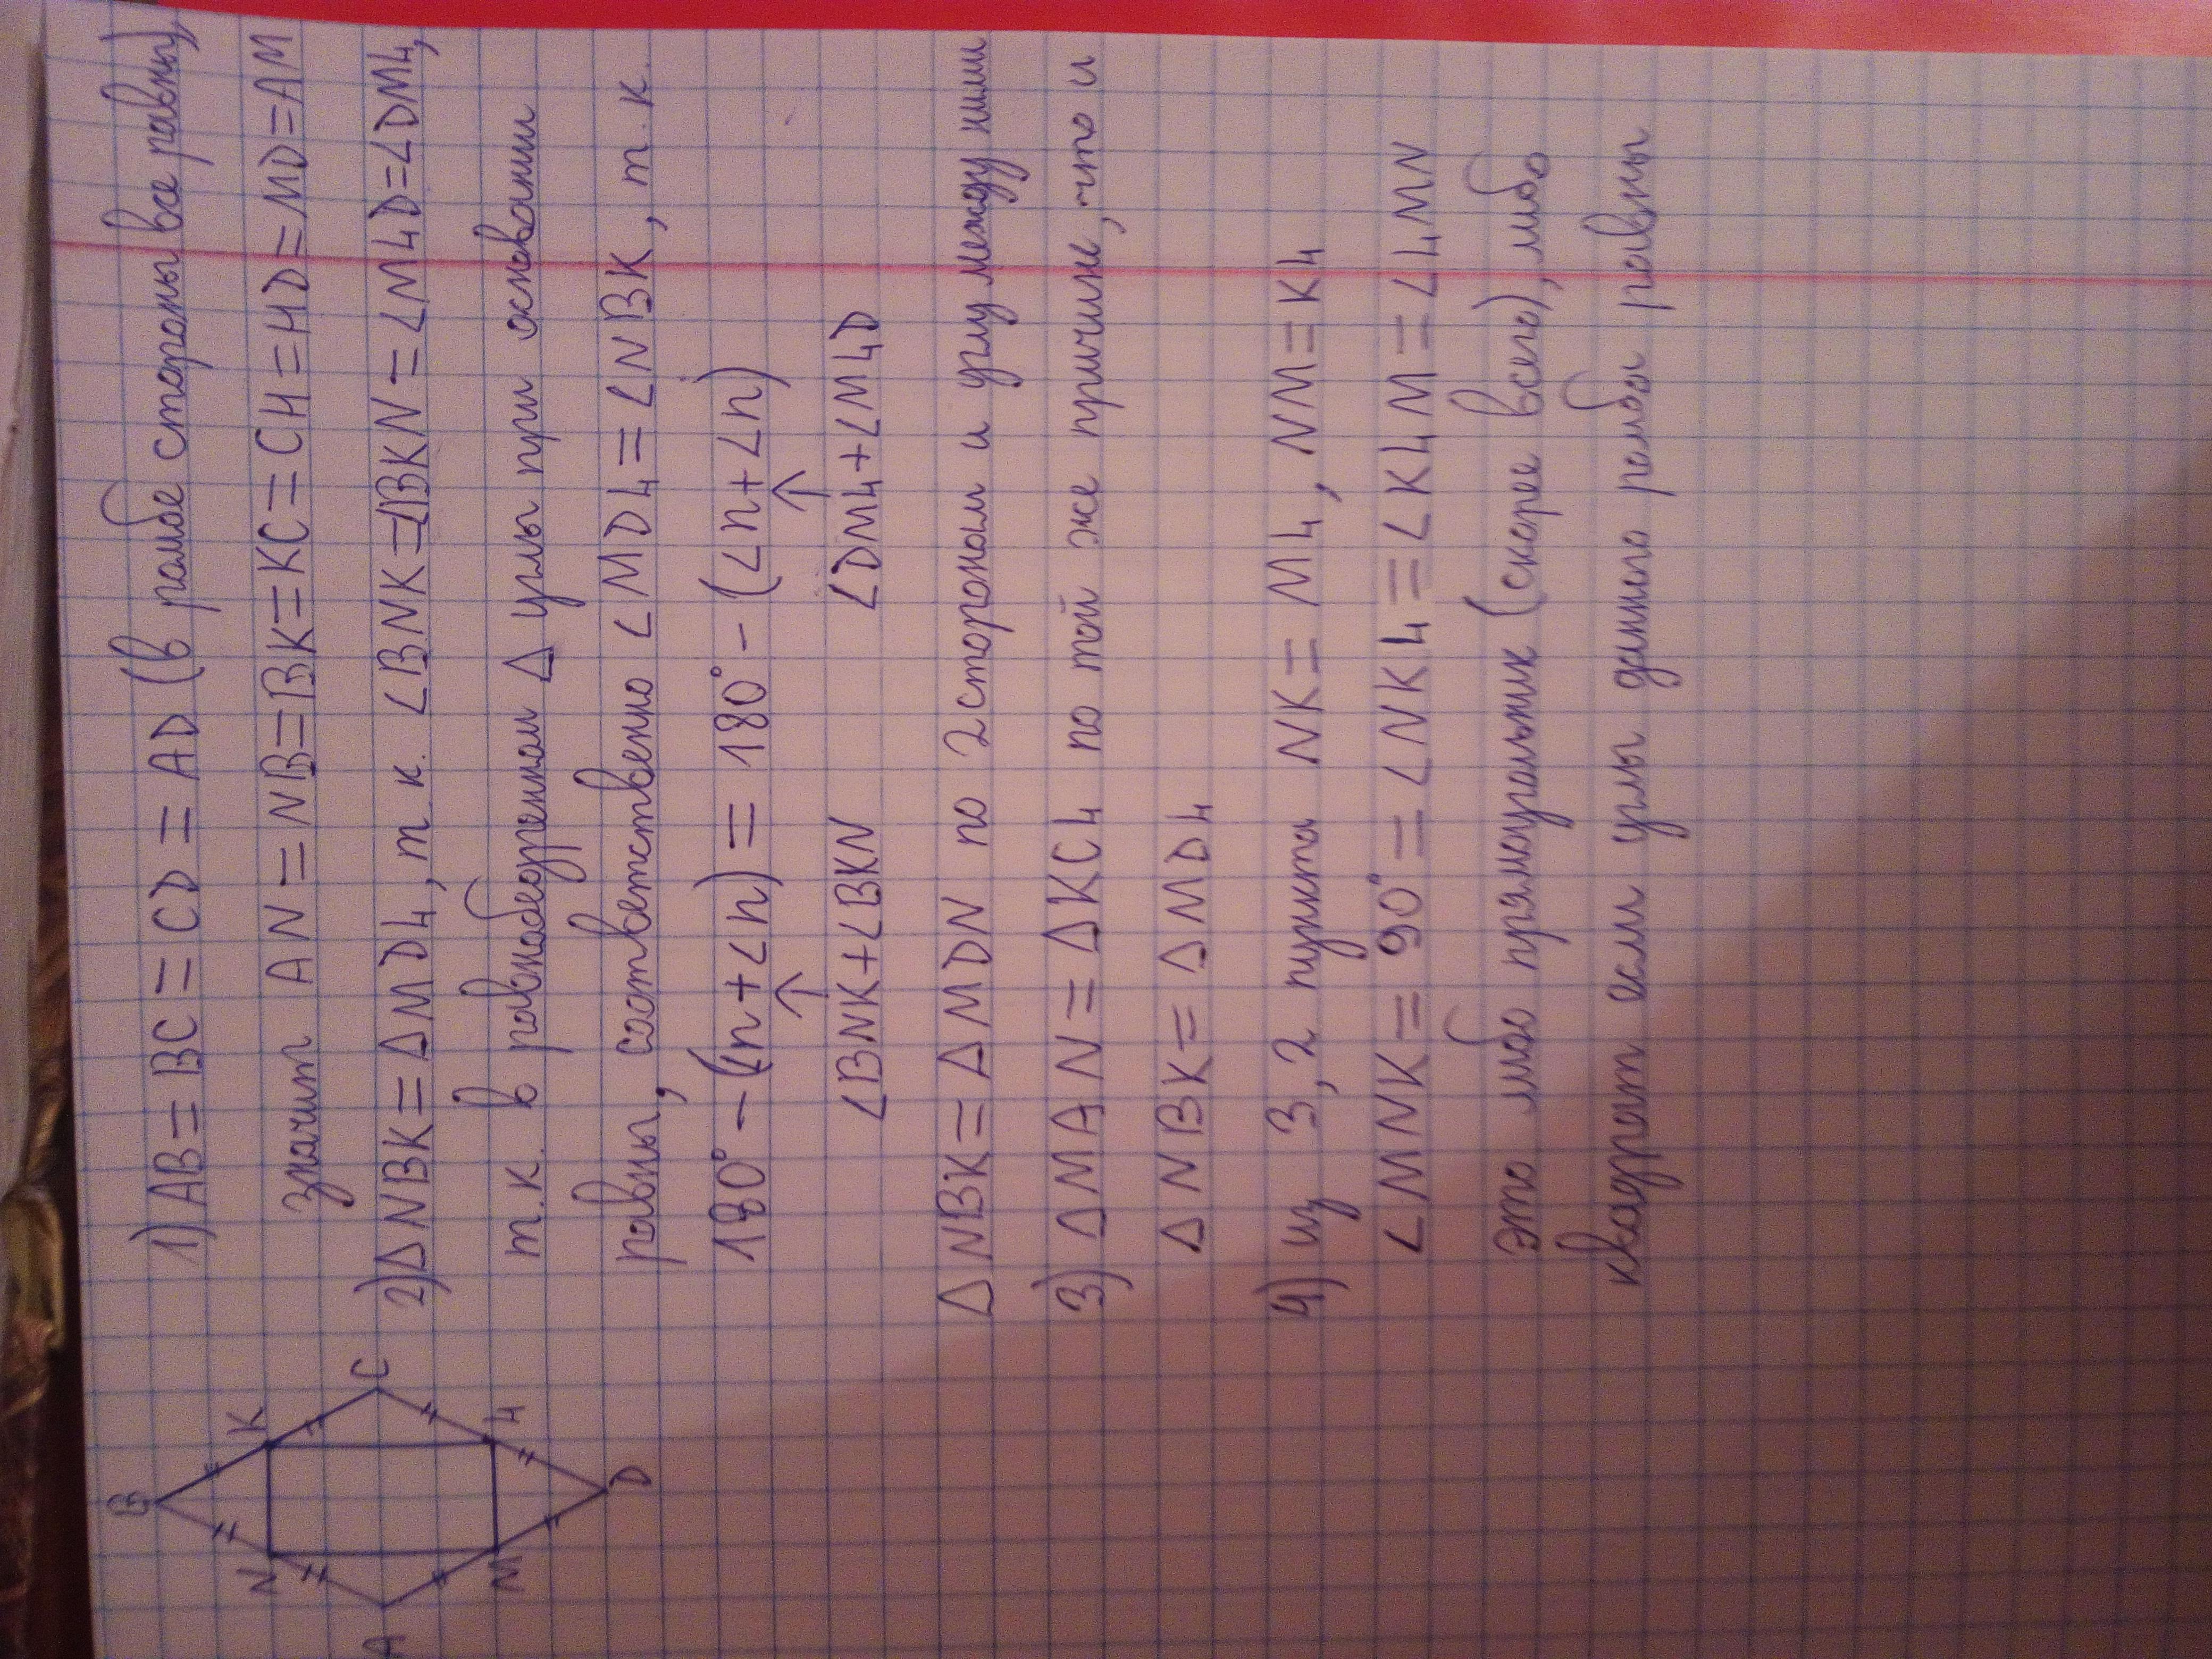 B
N
K
A
C
M
Ч
D
1) AB = BC = CD = AD (в ромбе стороны все равны),
значит AN = NB = BK = KC = CЧ = ЧD = MD = AM
2) ΔNBK = ΔMDЧ, т.к. ∠BNK = ∠BKN = ∠MЧD = ∠DMЧ,
т.к. в равнобедренном Δ углы при основании
равны, соответственно ∠MDЧ = ∠NBK, т.к.
180° - (∠n + ∠n) = 180° - (∠n + ∠n)
↑ ↑
∠BNK + ∠BKN ∠DMЧ + ∠MЧD
ΔNBK = ΔMDN по 2 сторонам и углу между ними
3) ΔMAN = ΔKCЧ по той же причине, что и
ΔNBK = ΔMDЧ
4) из 3, 2 пункта NK = MЧ, NM = KЧ
∠MNK = 90° = ∠NKЧ = ∠KЧM = ∠ЧMN
это либо прямоугольник (скорее всего), либо
квадрат если углы данного ромба равны